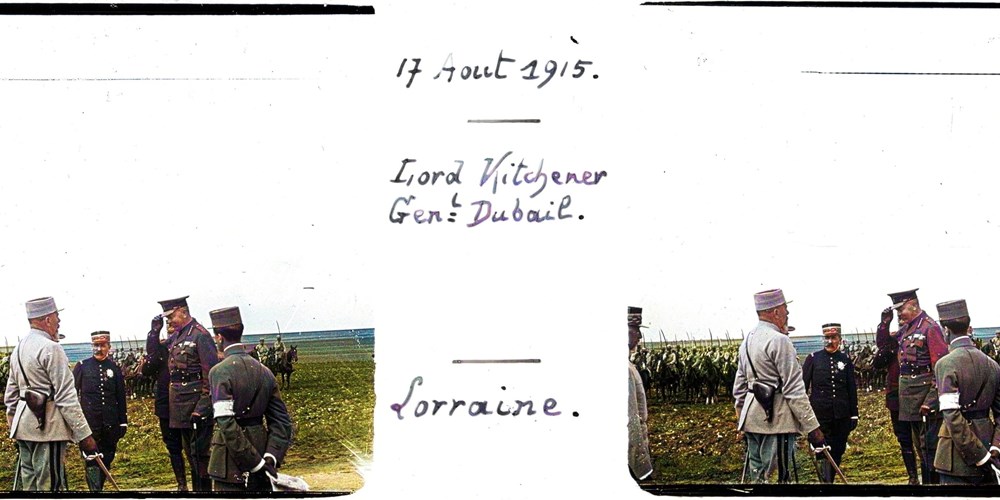 17 Aout 1915.
Lord Kitchener
Gen.l Dubail.
Lorraine.